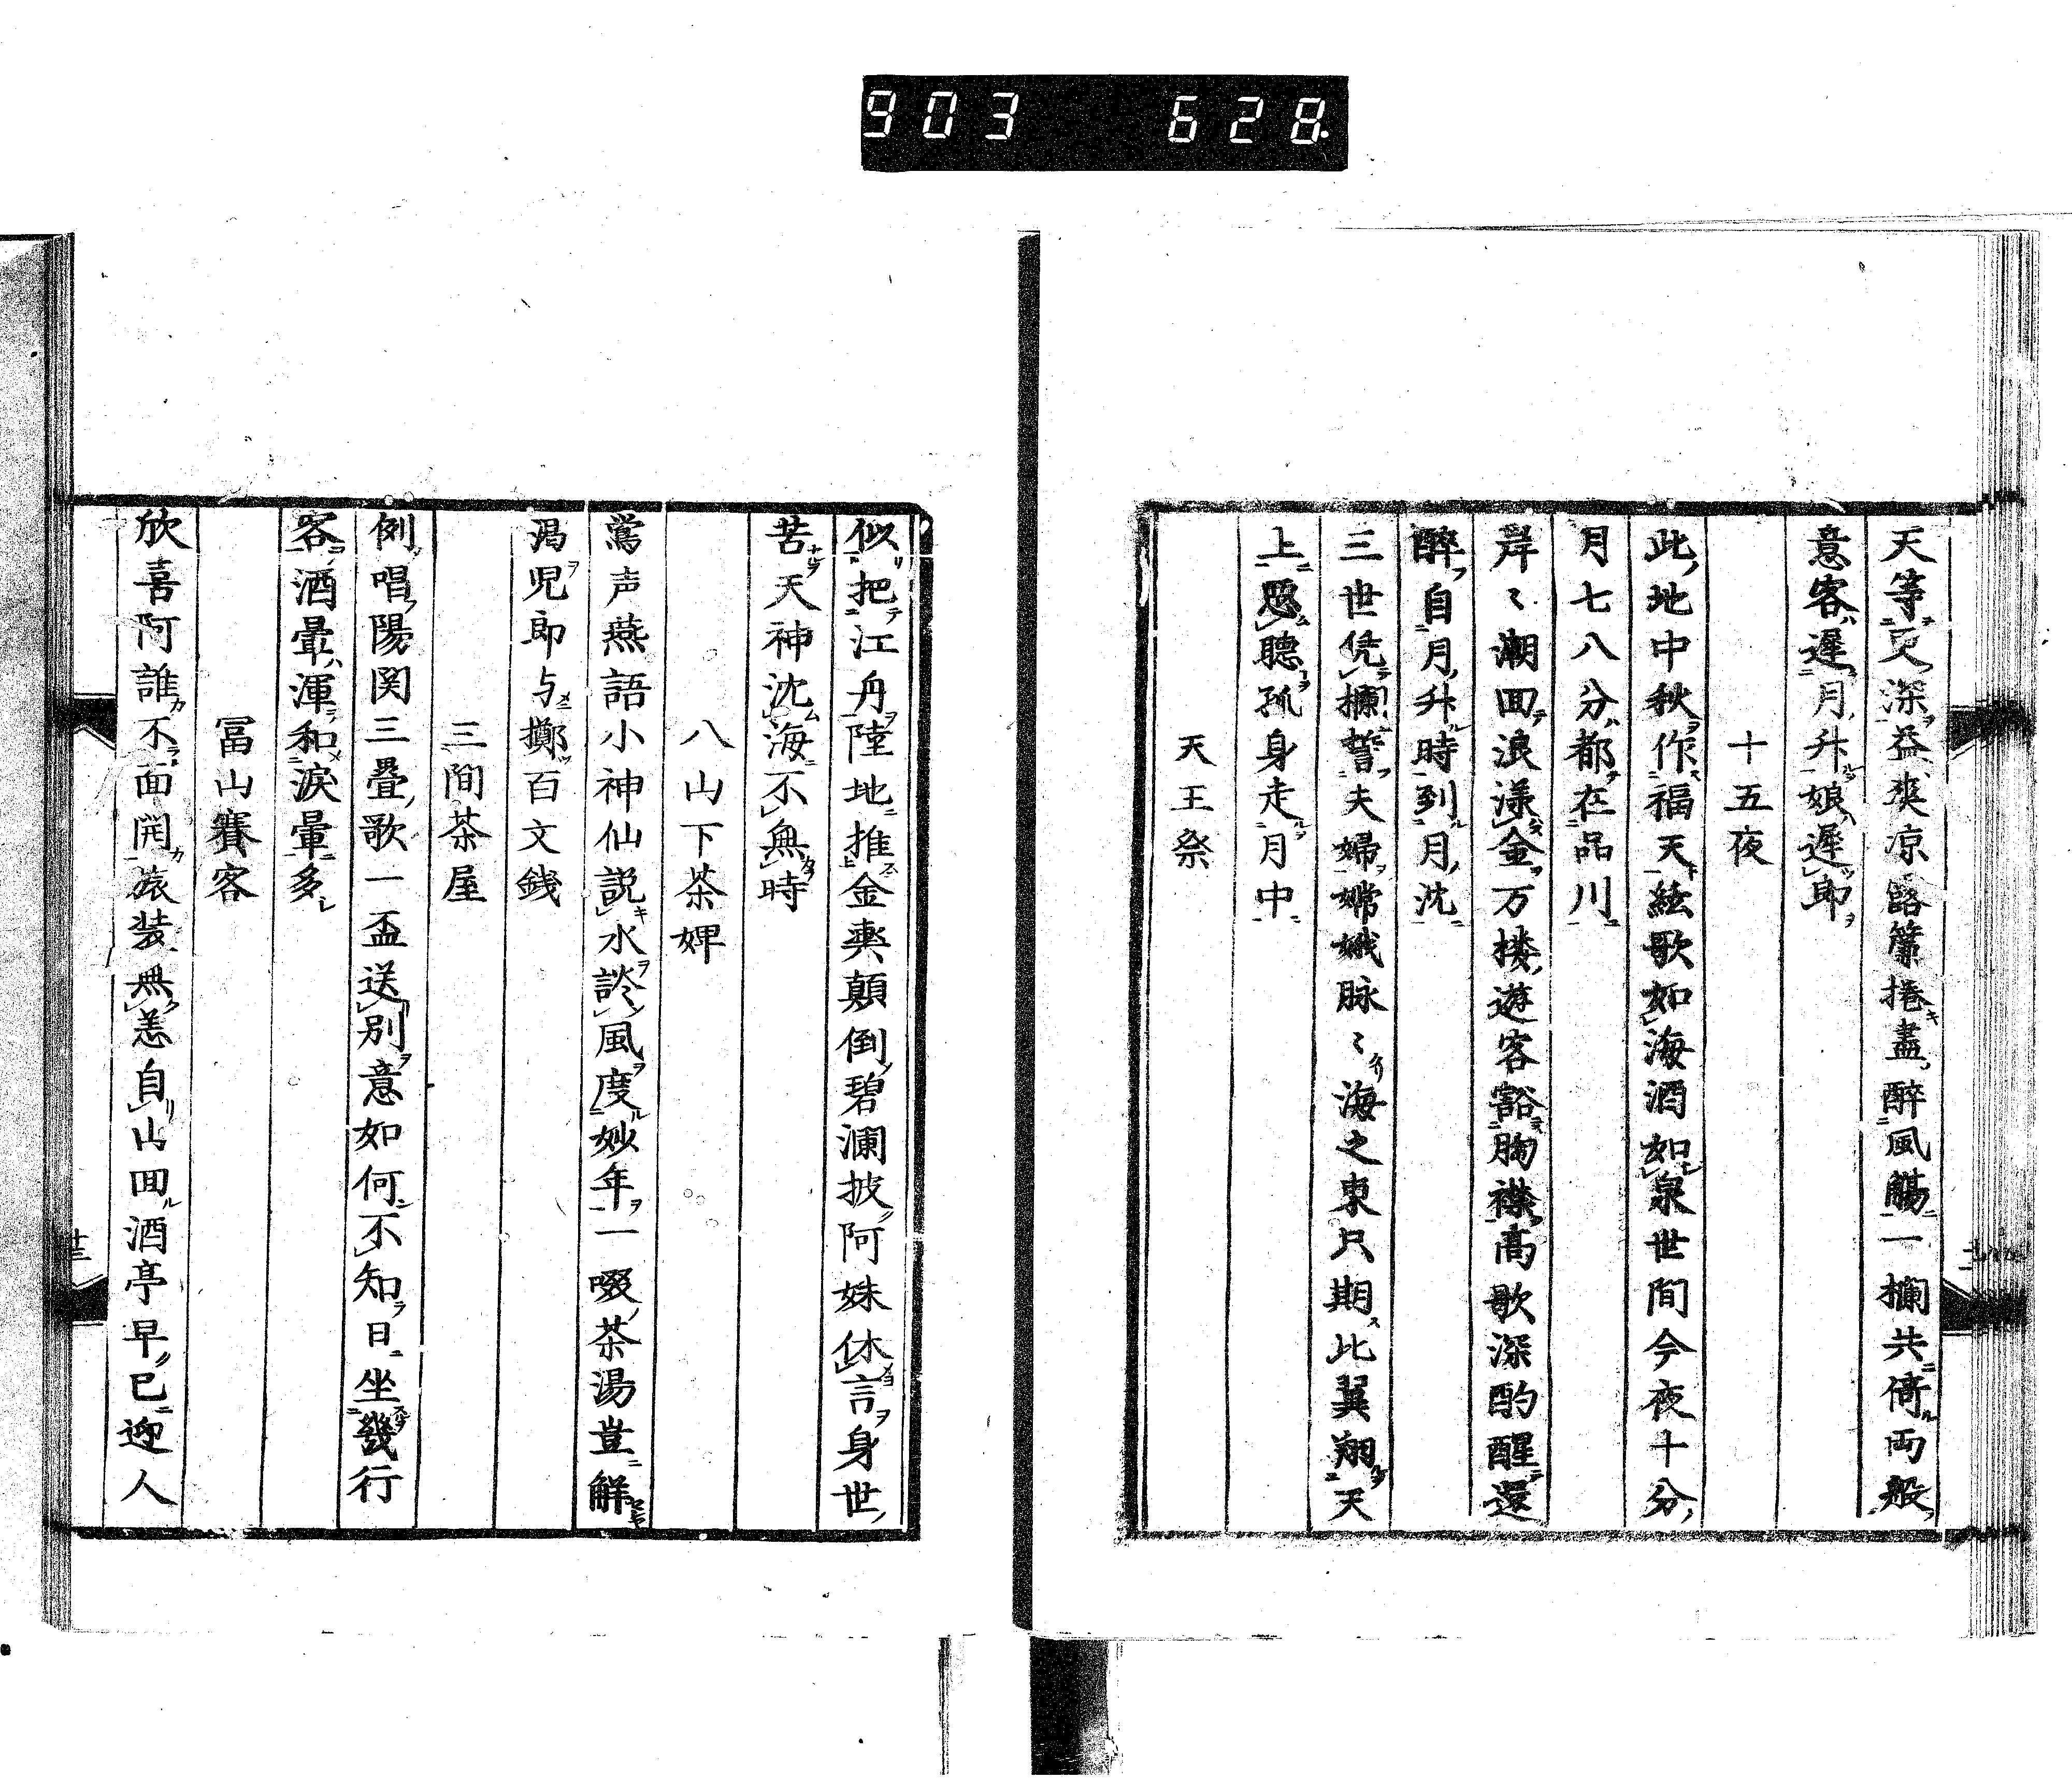 903 628.
天等更深益爽凉露簾捲盡醉風觴一欄共倚両般
意客遲月升娘遲郎
十五夜
此地中秋作福天絃歌如海酒如泉世間今夜十分
月七八分都在品川
岸〻潮回浪漾金万楼遊客豁胸襟高歌深酌醒還
醉自月升時到月沈
三世凭欄誓夫婦嫦娥脉〻海之東只期比翼翔天
上忍聽孤身走月中
天王祭
似把江舟陸地推金輿顛倒碧瀾披阿妹休言身世
苦天神沈海不無時
八山下茶婢
鶯声燕語小神仙説水談風度妙年一啜茶湯豈解
渇児郎与擲百文銭
三間茶屋
例唱陽関三疊歌一盃送別意如何不知日坐發行
客酒暈渾和淚暈多
冨山賽客
欣喜阿誰不面開旅装無恙自山回酒亭早已迎人